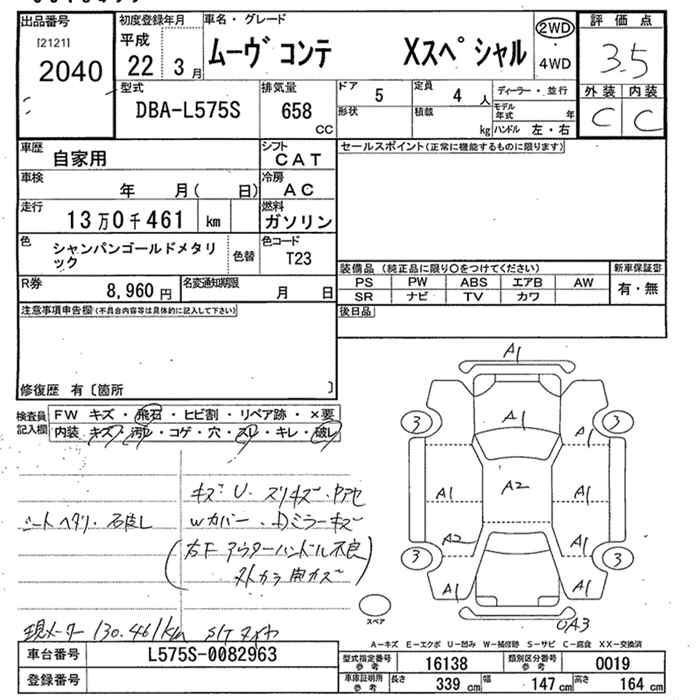 出品番号 初度登録年月 車名・グレード 2WD 評価点
[2121] 平成 ムーヴコンテ Xスペシャル ・ 3.5
2040 22 3月 4WD
型式 排気量 ドア 5 定員 4人 ディーラー・並行 外装 内装
DBA-L575S 658 cc 形状 積載 kg モデル年式 年 C C
ハンドル 左・右
車歴 自家用 シフト CAT セールスポイント(正常に機能するものに限ります)
車検 年 月( 日) 冷房 AC
走行 13万0千461 km 燃料 ガソリン
色 シャンパンゴールドメタリック 色替 色コード T23
装備品(純正品に限り○をつけてください) 新車保証書
PS PW ABS エアB AW 有・無
SR ナビ TV カワ
R券 8,960円 名変通知期限 月 日
注意事項申告欄(不具合内容等は具体的に記入して下さい) 後日品
修復歴 有〔箇所 〕
検査員記入欄 FW キズ・飛石・ヒビ割・リペア跡・×要
内装、キズ・汚レ・コゲ・穴・スレ・キレ・破レ
キズ U スリキズ
シートヘタリ
Wカバー ミラーキズ
(右F アウターハンドル不良
現メーター 130.461km S/Tタイヤ
A1
A1
3 3
A1
A1 A2 A1
A2 A1
3 3
A1 A1
A3
スペア
A-キズ E-エクボ U-凹み W-補修跡 S-サビ C-腐食 XX-交換済
車台番号 L575S-0082963
登録番号
型式指定番号参考 16138 類別区分番号参考 0019
車庫証明用参考 長さ 339 cm 幅 147 cm 高さ 164 cm